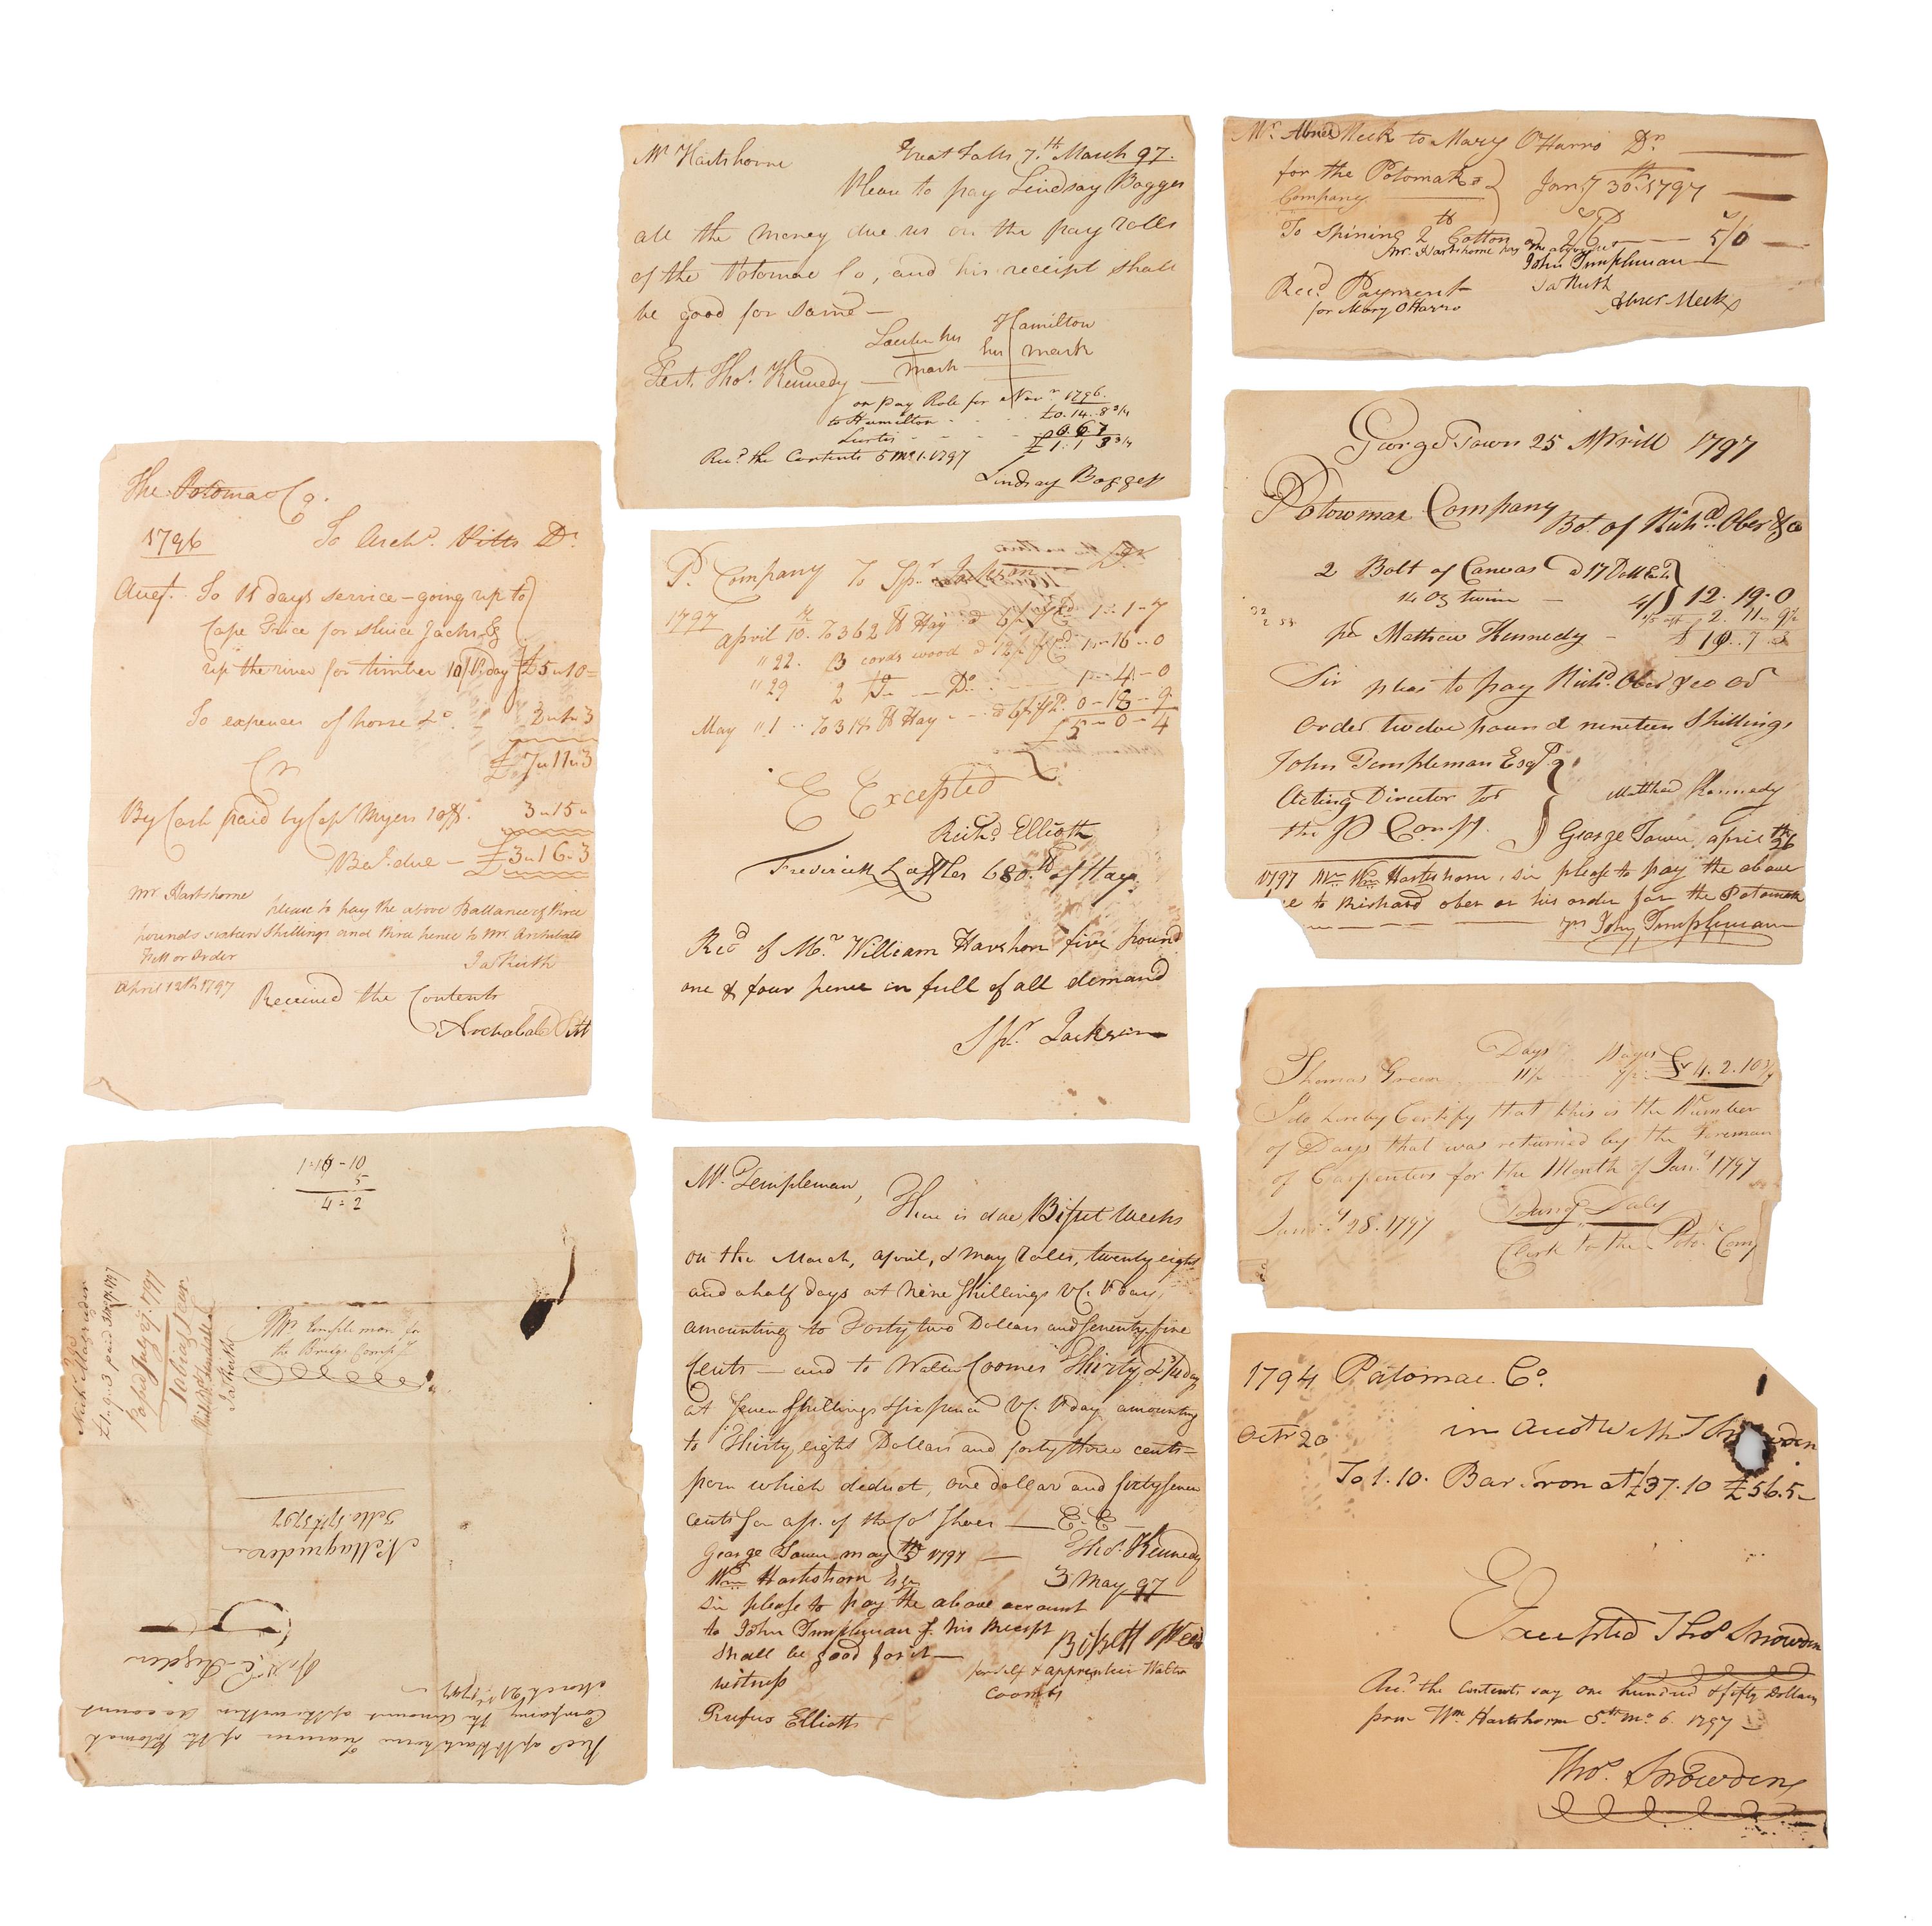 The Potomac Co.
1796 To Archd. Pitts Dr.
Augt. To 11 days service - going up to
Cape for Jacks &
up the river for timber 10/ P day £5 " 10 =
To expences of horse &c 2 " 1 " 3
£7 " 11 " 3
Cr
By Cash paid by Capt Myers 3 " 15 "
Bal. due - £3 " 16 " 3
Mr. Hartshorne
please to pay the above Ballance of three
pounds sixteen Shillings and three pence to Mr. Archibald
Pitt or Order
Ja Keith
April 12th 1797 Received the Contents
Archabald Pitt
1 " 10 - 10
5
4 = 2
Nich. Magruder
£1 " 9 " 3 paid
Passd July 27. 1797
Tobias Lear
Ja Keith
Mr Templeman for
the Bridge Compy
N. Magruder
1797
C. Higdon
Recd of W Hartshorne Treasurer of the Potomack
Company the Amount of the within Account
March 21st 1797
Mr Hartshorne Great Falls 7.th March 97.
Please to pay Lindsay Bogges
all the money due us on the pay rolls
of the Potomac Co, and his receipt shall
be good for same —
his Hamilton
mark her mark
Test. Thos. Kennedy
on pay Role for Novr. 1796.
to Hamilton - - £0. 14. 8 3/4
Lurtis - - - 0 6 7
£1. 1 3 3/4
Recd. the Contents 5 mo 1. 1797
Lindsay Boggess
P. Company To Spr. Jackson Dr
1797
April 10. To 362 lb Hay @ 6/ P Cd 1 - 1 - 7
" 22. 3 cords wood @ 12/ P Cd 1 - 16 - 0
" 29 2 Do — Do 1 - 4 - 0
May " 1 - To 318 lb Hay - - @ 6/ P Do. 0 - 18 - 9
£5 - 0 - 4
E Excepted
Richd. Elliott
Frederick Laffler 680 lb of Hay
Recd of Mr. William Harshorn five pound
one & four pence in full of all demand
Spr. Jackson
Mr. Templeman,
There is due Biset Weeks
on the March, April, & May roles, twenty eight
and a half days at nine Shillings VC. P day,
amounting to Forty two Dollars and Seventy five
Cents — and to Walter Coomes Thirty
at Seven Shillings & sixpence VC. P day amounting
to Thirty eight Dollars and forty three cents =
from which deduct, one dollar and sixty seven
cents for a pr. of the Cos Shoes — E. E —
George Town may 5th 1797 — Thos. Kennedy
Wm Hartshorn Esqr 3 May 97
Sir please to pay the above account
to John Templeman & his receipt
shall be good for it —
witness for self & apprentice Walter
Coombs
Rufus Elliott
Mr. Abner Meek to Mary OHarro Dr
for the Potomak
Company Jany 30th 1797
To Spining 2 lb Cotton @ 2/6 5/0
Mr. Hartshorne pay the above
John Templeman
Ja Keith
Recd Payment
for Mary OHarro Abner Meek
George Town 25 Aprill 1797
Potowmax Company
Bot. of Richd. Ober & Co
2 Bolt of Canvas @ 17 Doll Each
14 Oz twine — 12. 19. 0
2. 11. 9
per Mathew Kennedy - 10. 7. 3
Sir pleas to pay Richd. Ober & co or
order twelve pound nineteen Shillings
John Templeman Esqr
Acting Director for Matthew Kennedy
the P Compy.
George Town, april 26th
1797 Mr Wm Hartshorn, sir please to pay the above
to Richard ober or his order for the Potomak
John Templeman
Days Wages
Thomas Green 11 1/2 £4. 2. 10 3/4
I do hereby Certify that this is the Number
of Days that was returned by the Foreman
of Carpenters for the Month of Jany. 1797
Jany. 28. 1797 Daly
Clerk to the Poto. Comy
1794 Potomac Co.
Octr 20 in Acct With Thos Snowden
To 1. 10. Bar Iron at £37. 10 £56. 5 -
Excepted Thos. Snowden
Recd. the Contents say one hundred & fifty Dollars
from Wm. Hartshorne 5th mo. 6. 1797
Thos. Snowden